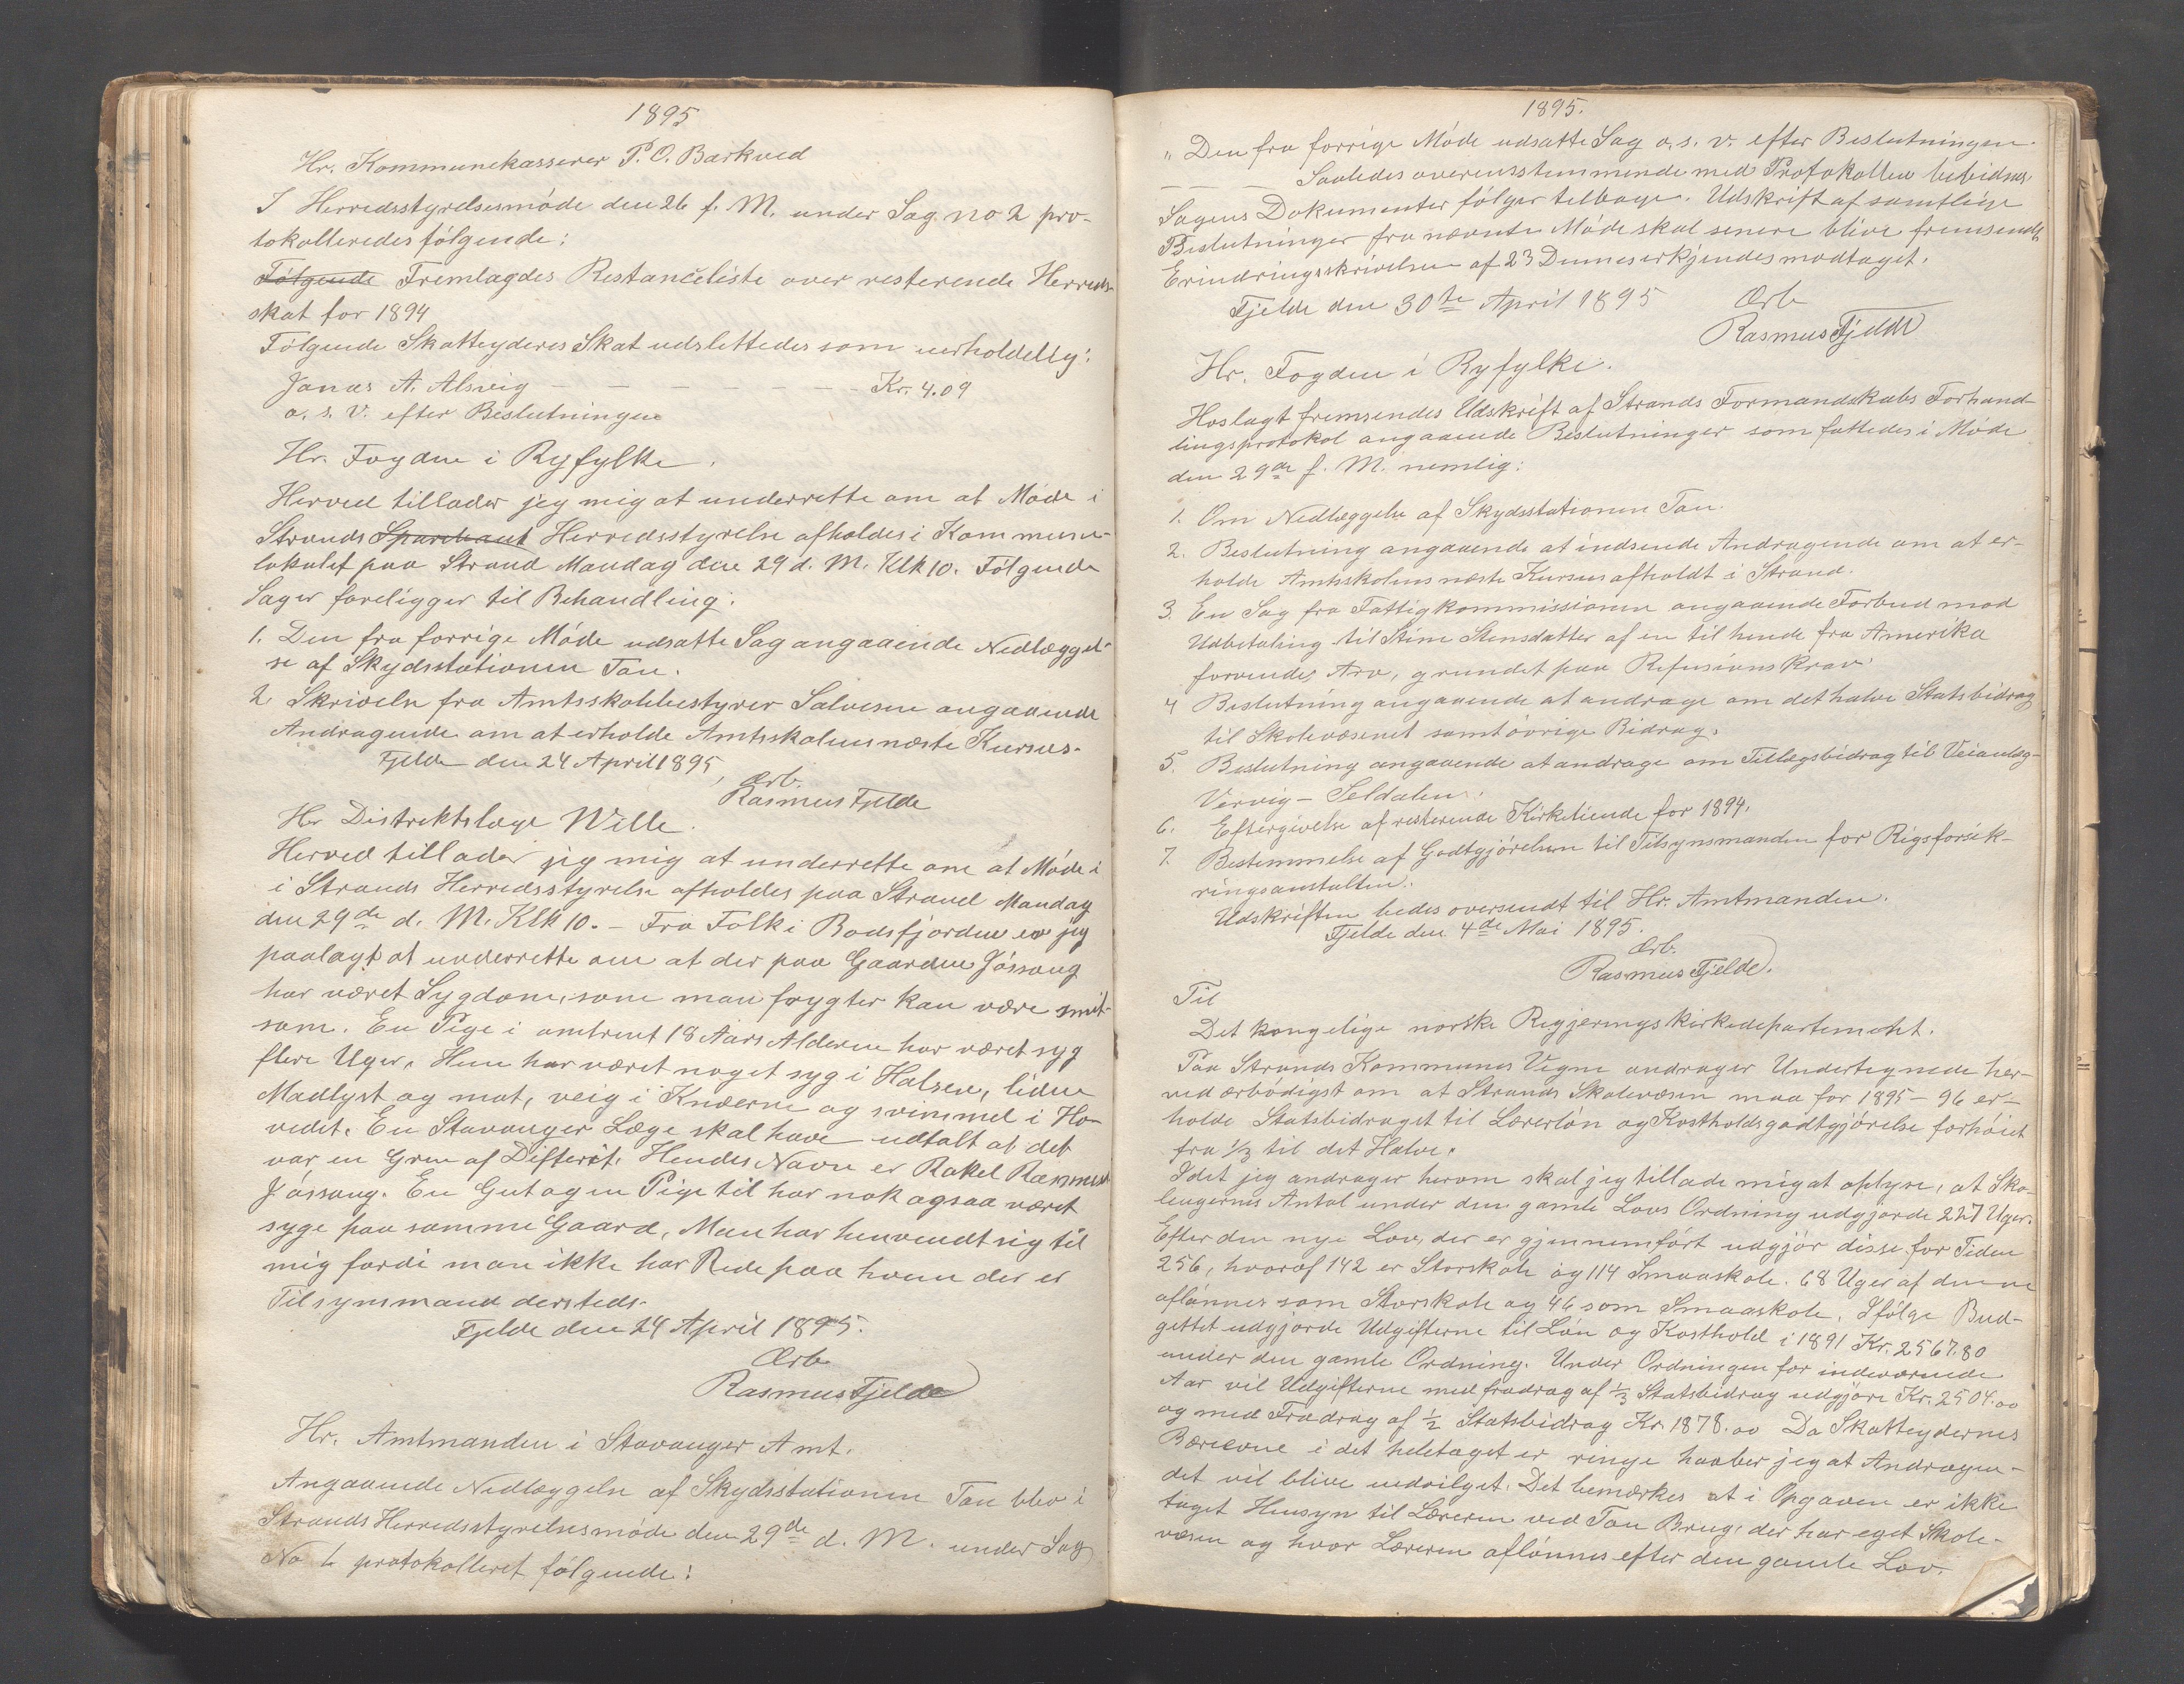 1895
Hr. Kommunekasserer P. O. Barkved
I Herredsstyrelsesmöde den 26 f. M. under Sag no 2 pro-
tokolleredes fölgende:
Fölgende Fremlagdes Restanceliste over resterende Herreds-
skat for 1894
Fölgende Skatteyderes Skat udslettedes som uerholdelig:
Jonas A. Alsvig — — — — — — — Kr. 4.09
o. s. v. efter Beslutningen
Hr. Fogden i Ryfylke.
Herved tillader jeg mig at underrette om at Möde i
Strands Herredsstyrelse afholdes i Kommune-
lokalet paa Strand Mandag den 29 d. M. Klk 10. Fölgende
Sager foreligger til Behandling:
1. Den fra forrige Möde udsatte Sag angaaende Nedlæggel-
se af Skydsstationen Tau.
2 Skrivelse fra Amtsskolebestyrer Salvesen angaaende
Andragende om at erholde Amtsskolens næste Kursus.
Fjelde den 24 April 1895,
Ærb.
Rasmus Fjelde
Hr Distriktslæge Wille.
Herved tillader jeg mig at underrette om at Möde i
i Strands Herredsstyrelse afholdes paa Strand Mandag
den 29de d. M. Klk 10. – Fra Folk i Bodsfjorden er jeg
paalagt at underrette om at der paa Gaarden Jössang
har været Sygdom, som man frygter kan være smit-
som. En Pige i omtrent 18 Aars Alderen har været syg
flere Uger. Hun har været noget syg i Halsen, liden
Madlyst og mat, veig i Knæerne og svimmel i Ho-
vedet. En Stavanger Læge skal have udtalt at det
var en Gren af Difterit. Hendes Navn er Rakel Rasmusd
Jössang. En Gut og en Pige til har nok ogsaa været
syge paa samme Gaard, Man har henvendt sig til
mig fordi man ikke har Rede paa hvem der er
Tilsynsmand dersteds.
Fjelde den 24 April 1895.
Ærb
Rasmus Fjelde
Hr. Amtmanden i Stavanger Amt.
Angaaende Nedlæggelse af Skydsstationen Tau blev i
Strands Herredsstyrelsesmöde den 29de d. M. under Sag
No 1 protokolleret fölgende:
1895.
„Den fra forrige Möde udsatte Sag o. s. v. efter Beslutningen.
— — — Saaledes overensstemmende med Protokollen bevidnes
Sagens Dokumenter fölger tilbage. Udskrift af samtlige
Beslutninger fra nævnte Möde skal senere blive fremsendt,
Erindringsskrivelsen af 23 Dennes erkjendes modtaget.
Fjelde den 30te April 1895
Ærb
Rasmus Fjelde
Hr. Fogden i Ryfylke.
Hoslagt fremsendes Udskrift af Strands Formandskabs Forhand-
lingsprotokol angaaende Beslutninger som fattedes i Möde
den 29de f. M. nemlig:
1. Om Nedlæggelse af Skydsstationen Tau.
2. Beslutning angaaende at indsende Andragende om at er-
holde Amtsskolens næste Kursus afholdt i Strand.
3. En Sag fra Fattigkommissionen angaaende Forbud mod
Udbetaling til Stine Stensdatter af en til hende fra Amerika
forvendes Arv, grundet paa Refusionskrav.
4 Beslutning angaaende at andrage om det halve Statsbidrag
til Skolevæsenet samt övrige Bidrag.
5. Beslutning angaaende at andrage om Tillægsbidrag til Veianlæg-
Vervig – Seldalen.
6. Eftergivelse af resterende Kirketiende for 1894.
7. Bestemmelse af Godtgjörelsen til Tilsynsmanden for Rigsforsik-
ringsanstalten.
Udskriften bedes oversendt til Hr. Amtmanden.
Fjelde den 4de Mai 1895.
Ærb.
Rasmus Fjelde.
Til
Det kongelige norske Regjerings kirkedepartement.
Paa Strands Kommunes Vegne andrager Undertegnede her-
ved ærbödigst om at Strands Skolevæsen maa for 1895 – 96 er-
holde Statsbidraget til Lærerlön og Kostholdsgodtgjörelse forhöiet
fra 1/3 til det Halve.
Idet jeg andrager herom skal jeg tillade mig at oplyse, at Sko-
leugernes Antal under den gamle Lovs Ordning udgjorde 227 Uger.
Efter den nye Lov, der er gjennemfört udgjör disse for Tiden
256, hvoraf 142 er Storskole og 114 Smaaskole. 68 Uger af denne
aflönnes som Storskole og 46 som Smaaskole. Ifölge Bud-
gettet udgjorde Udgifterne til Lön og Kosthold i 1891 Kr. 2567.80
under den gamle Ordning. Under Ordningen for indeværende
Aar vil Udgifterne med fradrag af 1/3 Statsbidrag udgjöre Kr. 2504.00
og med Fradrag af 1/2 Statsbidrag Kr. 1878.00 Da Skatteydernes
Bæreevne i det heletaget er ringe haaber jeg at Andragen-
det vil blive indvilget. Det bemærkes at i Opgaven er ikke
taget Hensyn til Læreren ved Tau Brug, der har eget Skole-
væsen og hvor Læreren aflönnes efter den gamle Lov.